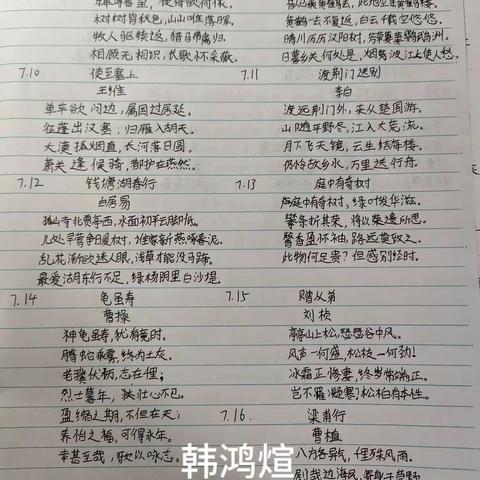 树树皆秋色，山山唯落晖。
牧人驱犊返，猎马带禽归。
相顾无相识，长歌怀采薇。
7.10 使至塞上
王维
单车欲问边，属国过居延。
征蓬出汉塞，归雁入胡天。
大漠孤烟直，长河落日圆。
萧关逢候骑，都护在燕然。
7.12 钱塘湖春行
白居易
孤山寺北贾亭西，水面初平云脚低。
几处早莺争暖树，谁家新燕啄春泥。
乱花渐欲迷人眼，浅草才能没马蹄。
最爱湖东行不足，绿杨阴里白沙堤。
7.14 龟虽寿
曹操
神龟虽寿，犹有竟时。
腾蛇乘雾，终为土灰。
老骥伏枥，志在
烈士暮年，壮心不已。
盈缩之期，不但在天；
养怡之福，可得永年。
幸甚至哉，歌以咏志。
黄鹤一去不复返，白云千载空悠悠。
晴川历历汉阳树，芳草萋萋鹦鹉洲。
日暮乡关何处是，烟波江上使人愁。
7.11 渡荆门送别
李白
渡远荆门外，来从楚国游。
山随平野尽，江入大荒流。
月下飞天镜，云生结海楼。
仍怜故乡水，万里送行舟。
7.13 庭中有奇树
庭中有奇树，绿叶发华滋。
攀条折其荣，将以遗所思。
馨香盈怀袖，路远莫致之。
此物何足贵？但感别经时。
7.15 赠从弟
刘桢
亭亭山上松，瑟瑟谷中风。
风声一何盛，松枝一何劲！
冰霜正惨凄，终岁常端正。
岂不罹凝寒？松柏有本性。
7.16. 梁甫行
曹植
八方各异气，千里殊风雨。
剧哉边海民，寄身于草野
韩鸿煊